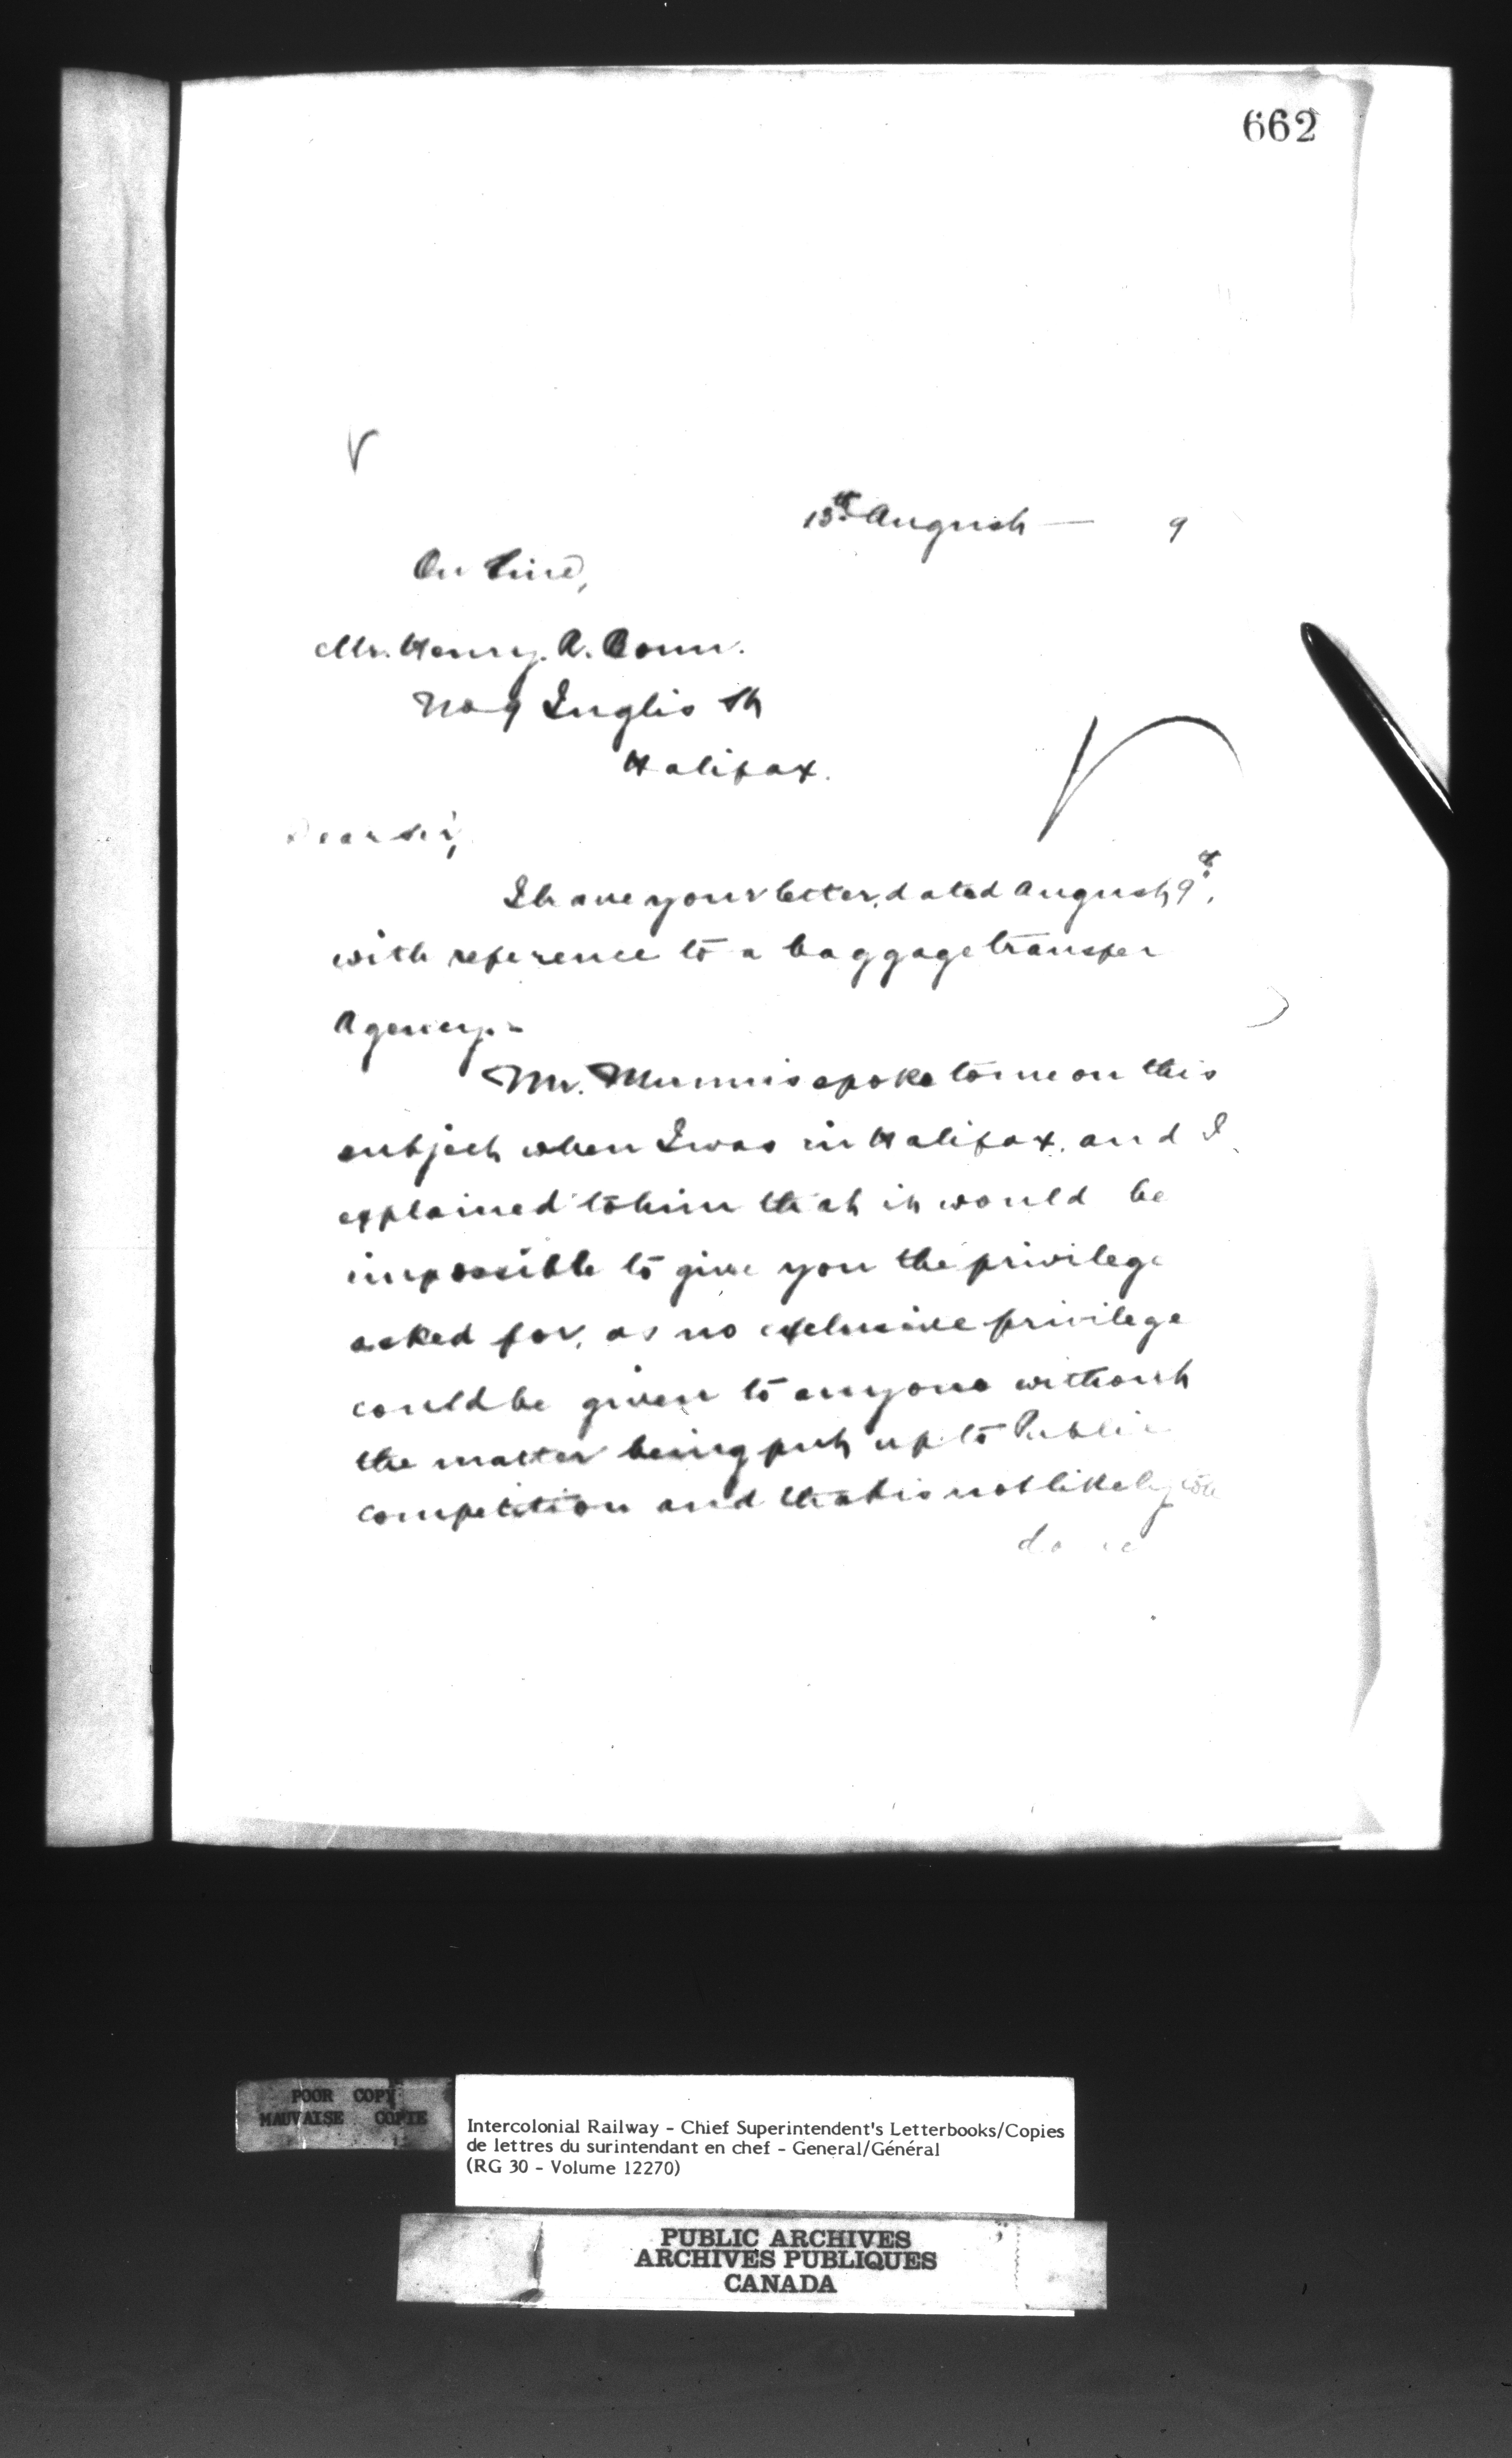 662
13th August — 9
On Line,
Mr. Henry. A. Bonn.
No 9 Inglis St
Halifax.
Dear Sir,
I have your letter, dated August 9th,
with reference to a baggage transfer
Agency. -
Mr. Mumnis spoke to me on this
subject when I was in Halifax. and I
explained to him that it would be
impossible to give you the privilege
asked for, as no exclusive privilege
could be given to anyone without
the matter being put up to Public
competition and that is not likely to be
done
POOR COPY
MAUVAISE COPIE
Intercolonial Railway - Chief Superintendent's Letterbooks/Copies
de lettres du surintendant en chef - General/Général
(RG 30 - Volume 12270)
PUBLIC ARCHIVES
ARCHIVES PUBLIQUES
CANADA